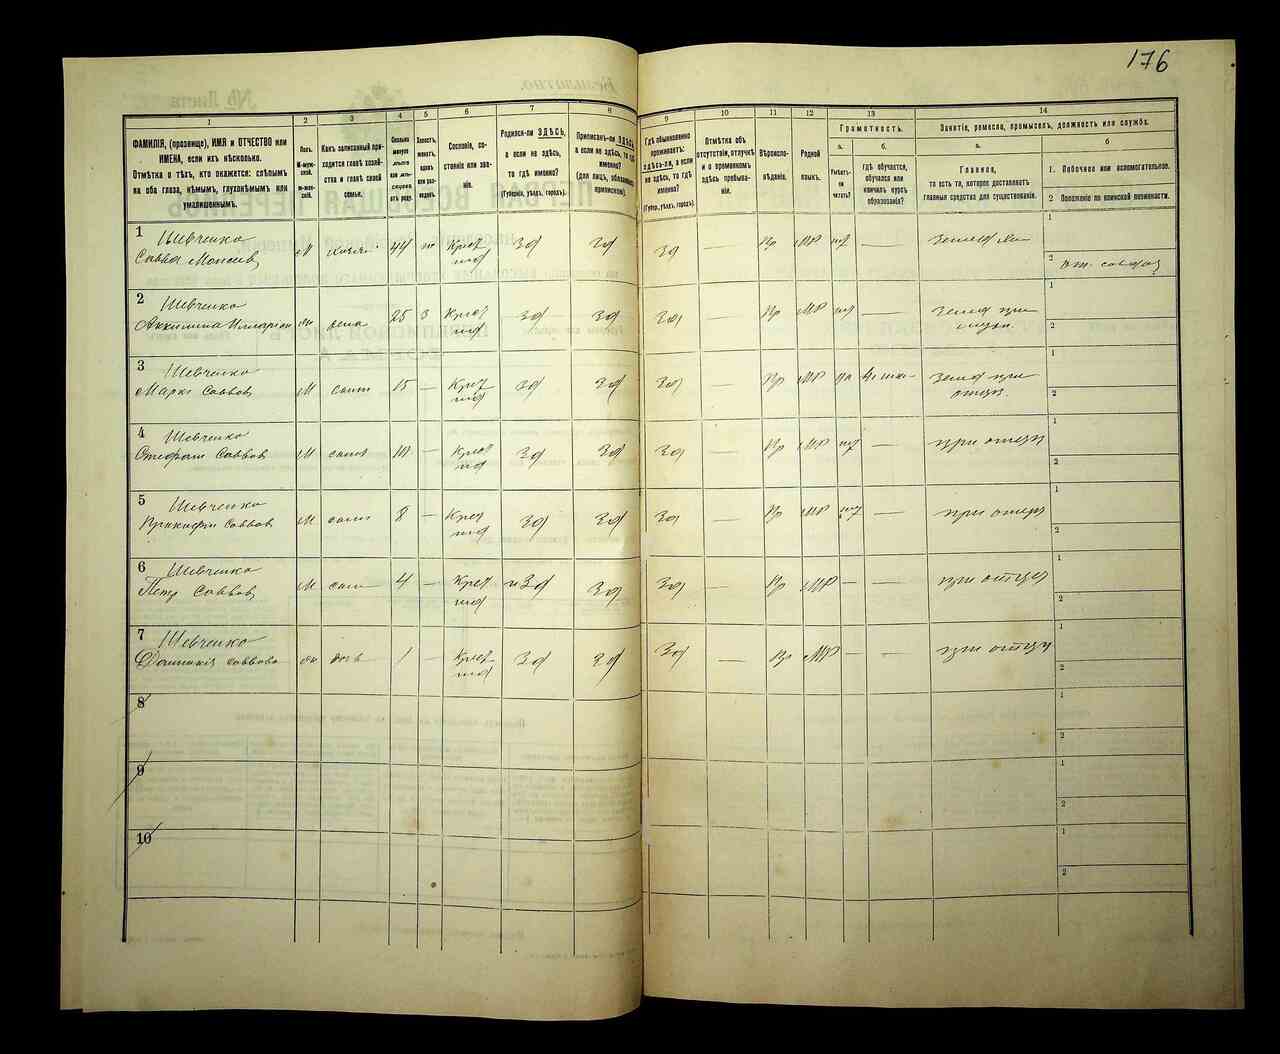 176
1
2
3
4
5
6
7
8
9
10
11
12
13
14
ФАМИЛІЯ, (прозвище), ИМЯ и ОТЧЕСТВО или
ИМЕНА, если ихъ нѣсколько.
Отмѣтка о тѣхъ, кто окажется: слѣпымъ
на оба глаза, нѣмымъ, глухонѣмымъ или
умалишеннымъ.
Полъ.
М-муж-
ской.
Ж-жен-
скій.
Какъ записанный при-
ходится главѣ хозяй-
ства и главѣ своей
семьи.
Сколько
минуло
лѣтъ
или мѣ-
сяцевъ
отъ роду.
Холостъ,
женатъ,
вдовъ
или раз-
веденъ.
Сословіе, со-
стояніе или зва-
ніе.
Родился-ли ЗДѢСЬ,
а если не здѣсь,
то гдѣ именно?
(Губернія, уѣздъ, городъ).
Приписанъ-ли ЗДѢСЬ,
а если не здѣсь, то гдѣ
именно?
(для лицъ, обязанныхъ
припискою).
Гдѣ обыкновенно
проживаетъ:
здѣсь-ли, а если
не здѣсь, то гдѣ
именно?
(Губер, уѣздъ, городъ).
Отмѣтка объ
отсутствіи, отлучкѣ
и о временномъ
здѣсь пребыва-
ніи.
Вѣроиспо-
вѣданіе.
Родной
языкъ.
Грамотность.
а.
б.
Умѣетъ-
ли
читать?
Гдѣ обучается,
обучался или
кончилъ курсъ
образованія?
Занятіе, ремесло, промыселъ, должность или служба.
а.
б
Главное,
то есть то, которое доставляетъ
главныя средства для существованія.
1. Побочное или вспомогательное.
2 Положеніе по воинской повинности.
1
Шевченко
Савва Моисеев
М
хозяин
44
Крест
зд
зд
зд
—
Пр
МР
1
2
2
Шевченко
жена
25
3
Крест
зд
зд
зд
—
Пр
МР
—
1
2
3
Шевченко
Марко Саввов
М
сын
15
—
Крест
зд
зд
зд
—
Пр
МР
да
земл при
отцу
1
2
4
Шевченко
Стефан Саввов
М
сын
10
—
Крест
зд
зд
зд
—
Пр
МР
—
при отцу
1
2
5
Шевченко
Прокофий Саввов
М
сын
8
—
Крест
зд
зд
зд
—
Пр
МР
—
при отцу
1
2
6
Шевченко
Петр Саввов
М
сын
4
—
Крест
зд
зд
зд
—
Пр
МР
—
—
при отцу
1
2
7
Шевченко
Саввова
дочь
1
—
Крест
зд
зд
зд
—
Пр
МР
—
—
при отцу
1
2
8
1
2
9
1
2
10
1
2